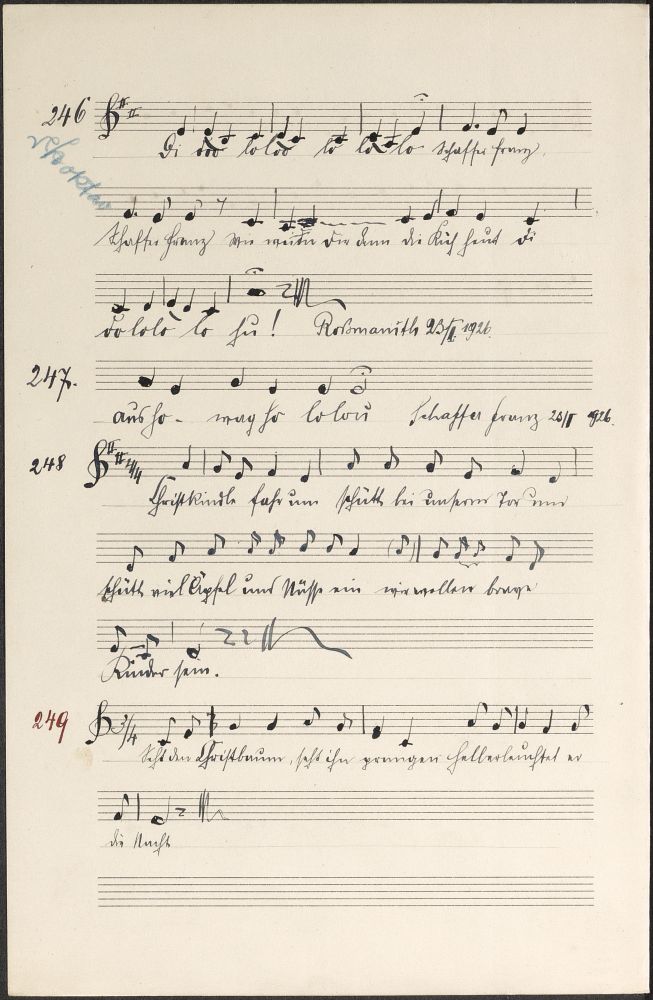 246
Di doo loloo lo lo lo Schaffer Franz.
Schaffer Franz wo weidn dir denn die Küh heut di
dololo lo hu! Roßmanith 23/II. 1926.
247.
aus ho- Schaffer Franz 23/II 1926.
248
4/4
Christkindle fahr um schütt bei unserem Tor um
schütt viel Äpfel und Nüsse ein wir wollen brave
Kinder sein.
249
3/4
Seht den Christbaum, seht ihn prangen hellerleuchtet er
die Nacht